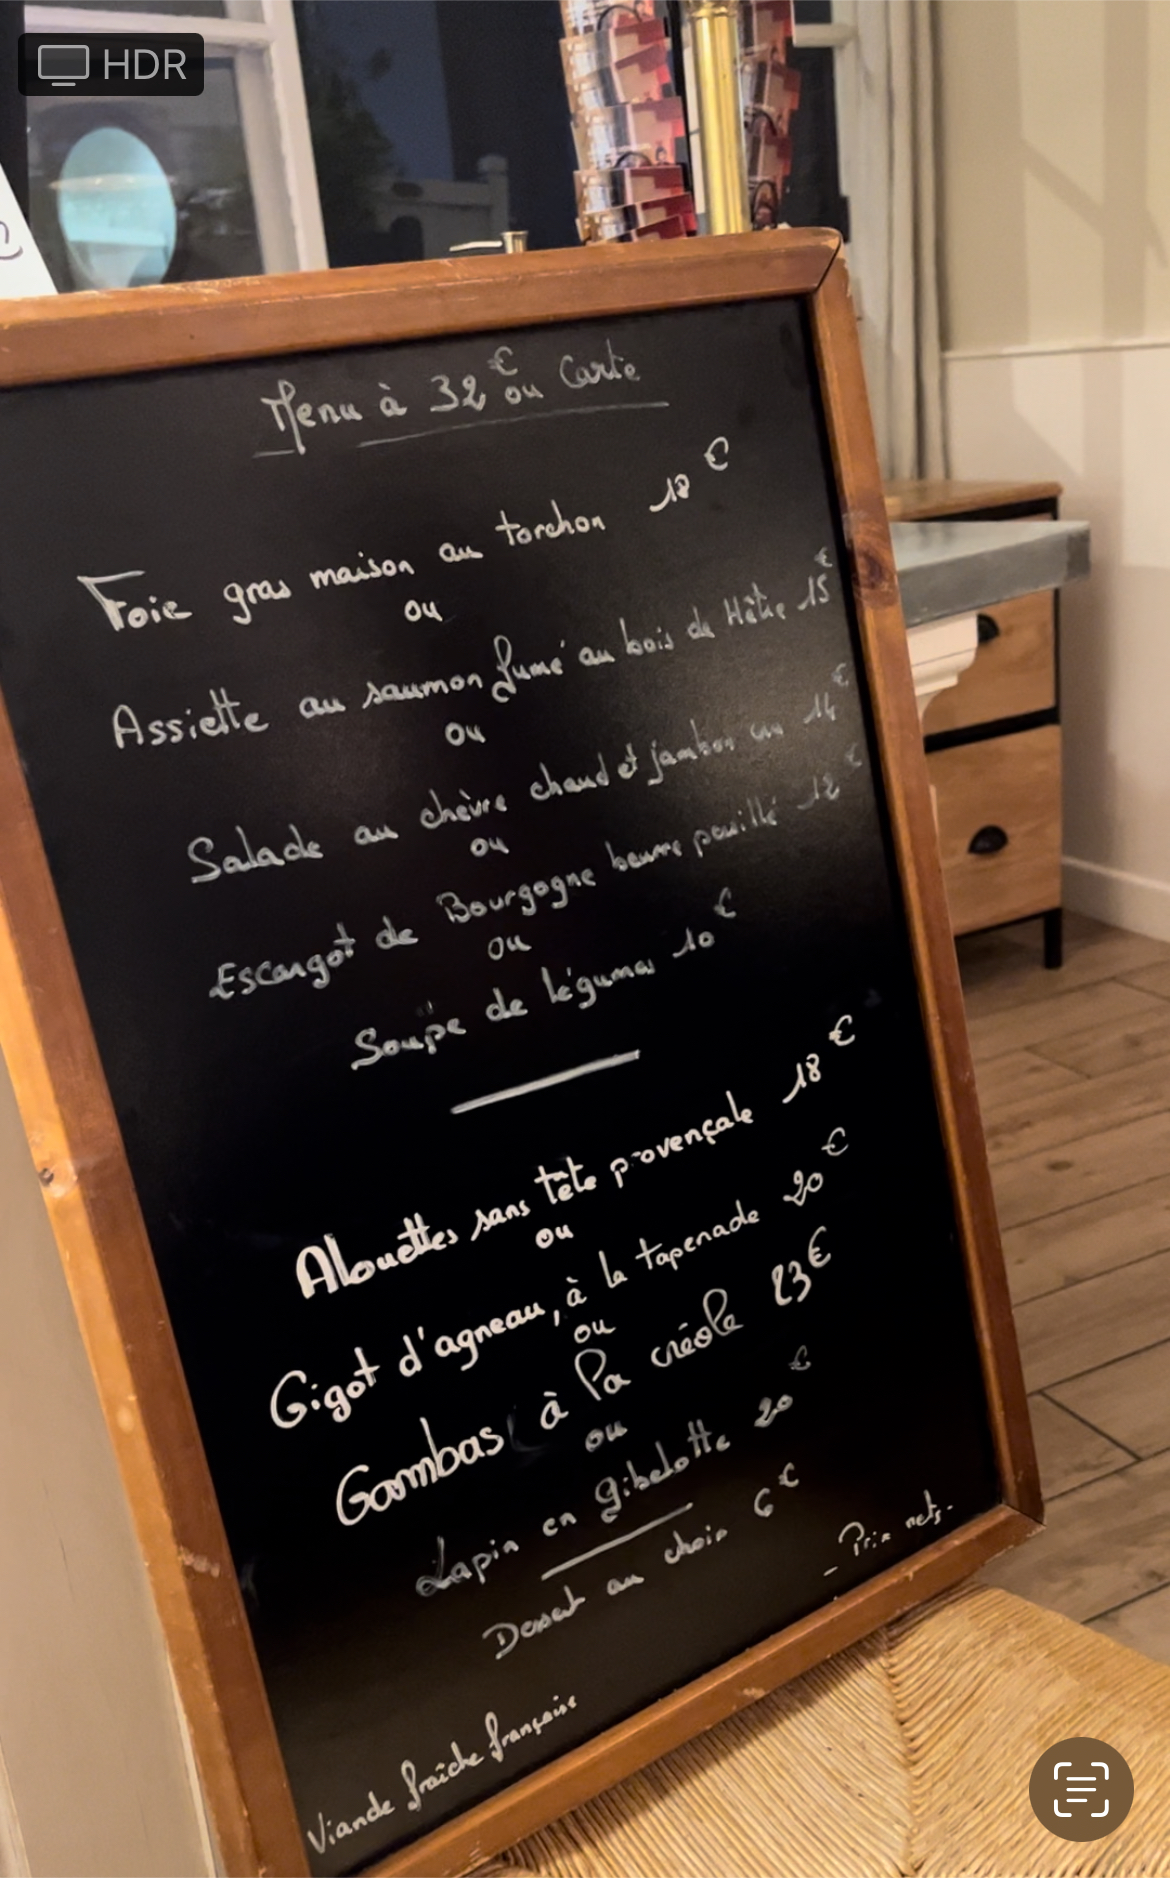 HDR
Menu à 32€ ou Carte
Foie gras maison au torchon 18€
ou
Assiette au saumon fumé au bois de Hêtre 15€
ou
Salade au chèvre chaud et jambon cru 14€
ou
Escargot de Bourgogne beurre persillé 12€
ou
Soupe de légumes 10€
Alouettes sans tête provençale 18€
ou
Gigot d'agneau, à la tapenade 20€
ou
Gambas à la créole 23€
ou
Lapin en gibelotte 20€
Dessert au choix 6€
- Prix nets.
Viande fraîche française